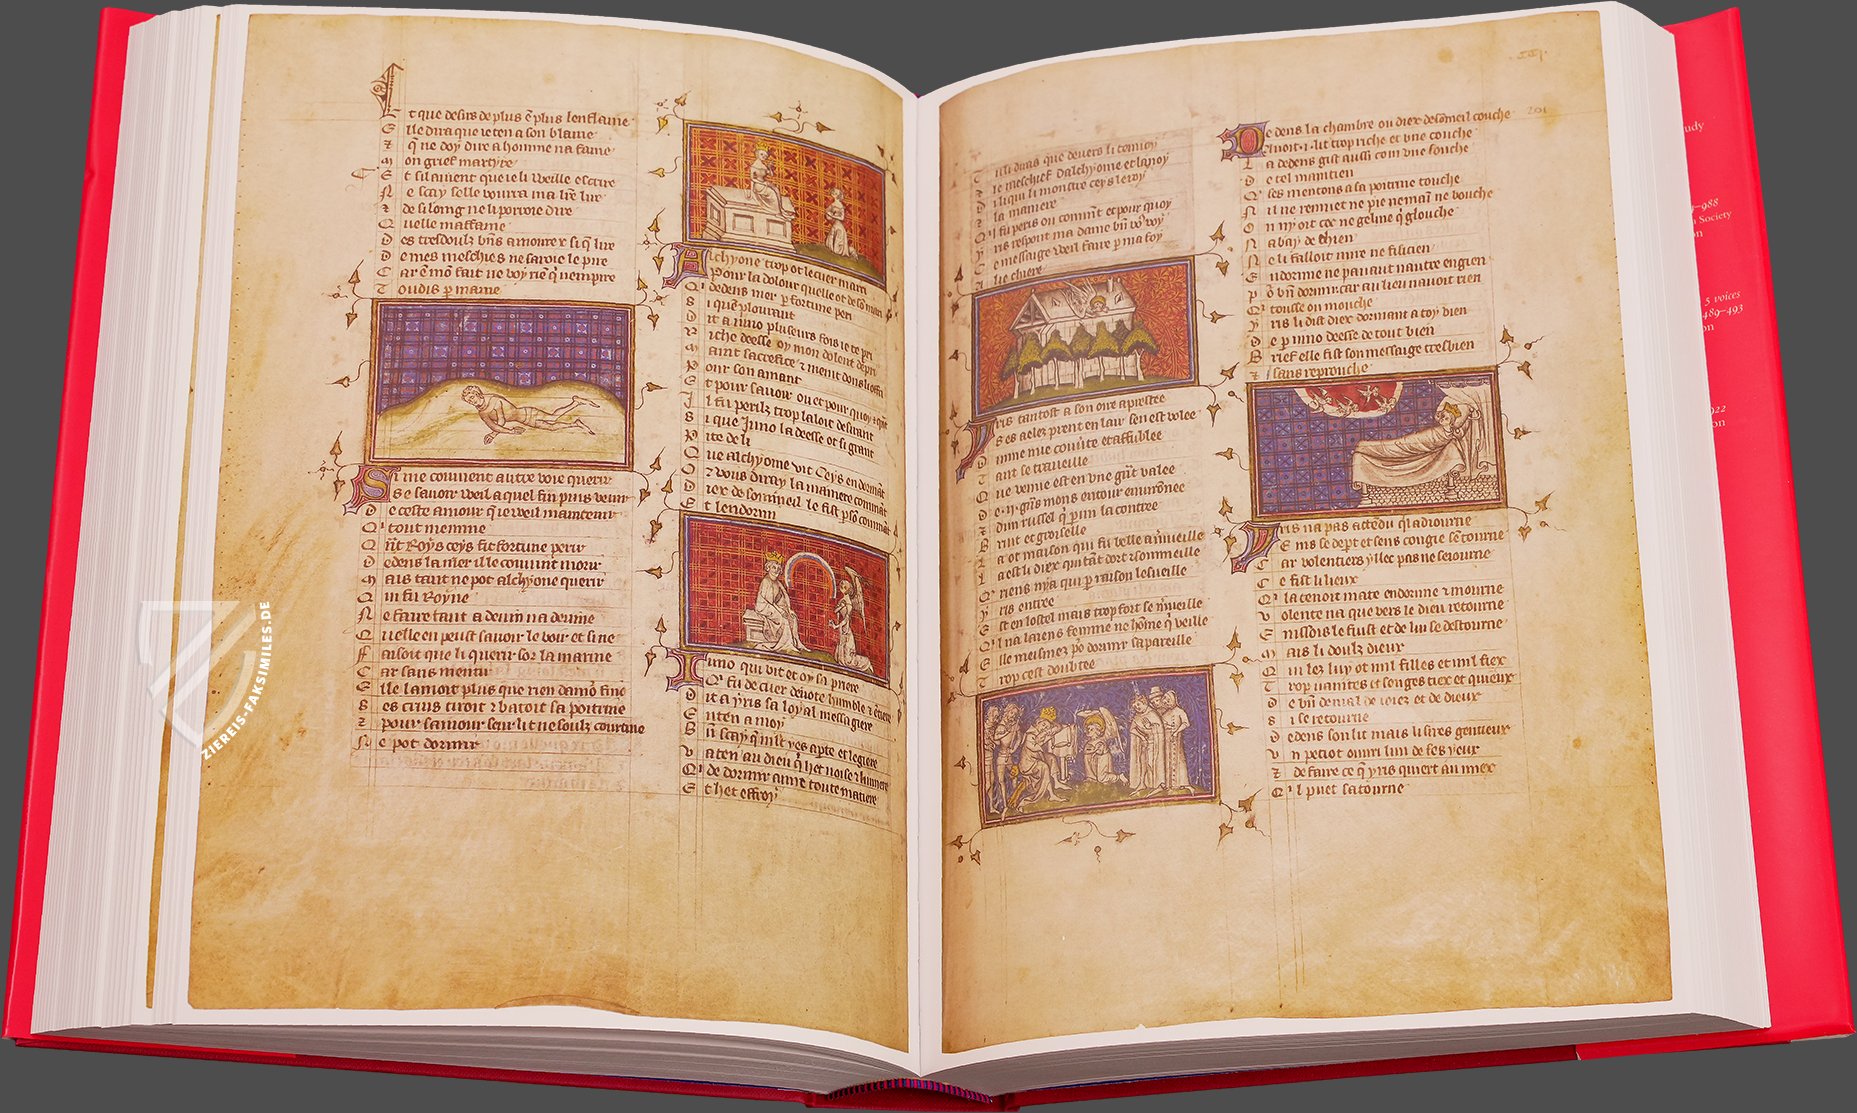 Et que desirs de plus ē plus lenflame
Elle dira que ie ten a son blame
z q̄ ne doy dire a homme na fame
mon grief martyre
Et silauient que ie li vueille escrire
Ne scay selle vourra ma lr̄e lire
z de si loing ne li porroie dire
Quelle maffame
Des tresdoulz bn̄s amoureꝰ si q̄ lire
De mes meschies ne saroie le pire
Car ē mō fait ne voy riē q̄ nempire
Toudis p̱ mame
Si me couuient autre voie querir
Se sauoir vueil a quel fin puis venir
De ceste amour q̄ ie vueil maintenir
Qͥ tout menmie
Qn̄t Roys ceys fit fortune perir
Dedens la mer il le couuint morir
Mais tant ne pot alchyone querir
Qui fu Royne
Ne faire tant a deuin na deuine
Quelle en peust sauoir le voir et si ne
Faisoit que li querir sor la marine
Car sans mentir
Elle lamoit plus que rien damō fine
Ses crins tiroit z batoit sa poitrine
z pour samour seur lit ne soulz courtine
Ne pot dormir
Alchyone trop ot le cuer marri
Pour la dolour quelle ot de sō mari
Qͥ dedens mer p̱ fortune peri
Si quē plourant
Dit a iuno pluseurs fois ie te pri
Riche deesse oy mon dolent depri
Maint sacrefice z meint dons li offri
Pour son amant
Et pour sauoir ou et pour quoy z q̄nt
Il fu perilz trop laloit desirant
Si que Juno la deesse ot si grant
Pite de li
Que alchyone vit Ceys en dormāt
z vous diray la maniere commāt
Diex de sommeil le fist p̱ sō commāt
Et lendormi
Iuno qui vit et oy sa priere
Qͥ fu de cuer deuote humble z entiere
Dit a yris sa loyal messagiere
Enten a moy
Bn̄ scay q̄ mlt̄ yes apte et legiere
Va ten au dieu q̄ het noise z lumiere
Qͥ de dormir aime toute matiere
Et het effroy
Tu li diras que deuers li tenuoy
z le meschief Dalchyone et lanoy
Di li qui li monstre ceys le roy
z la maniere
Qͥl fu peris ou commēt et pour quoy
yris respont ma dame bn̄ vo᷑ voy
Ce message vueil faire p̱ ma foy
Ma tre chiere
Yris tantost a son oirre aprestee
Ses aelez prent en lair sen est volee
Dune nue couu̾te et affublee
Tant se traueille
Que venue est en vne grāt valee
De .ij. grās mons entour enuirōnee
z dun russel q̄ p̱mi la contree
Bruit et groiselle
La ot maison qui fu belle a m̾ueille
La est li diex qui tāt dort z sommeille
Qͥ riens nya qui p̱ raison lesueille
yris entree
Est en lostel mais trop fort se m̾ueille
Qͥl na laiens femme ne hōme q̄ veille
Elle meismez po᷑ dormir sapareille
Trop cest doubtee
201
Dedens la chambre ou diex de sōmeil couche
Demont .i. lit trop riche et vne couche
La dedens gist aussi com vne souche
De tel maintien
Qͥ ses mentons a sa poitrine touche
Nil ne remuet ne pie ne mai ne bouche
On ny oit coc ne geline q̄ glouche
Nabay de chien
Ne li falloit mire ne filicien
Endormi ne pauaut nautre engien
Po᷑ bn̄ dormir car au lieu nauoit rien
Qͥ tousse ou mouche
Yris li dist diex dormant a toy vien
De p̱ iuno deesse de tout bien
Brief elle fist son message tresbien
z sans reprouche
Yris na pas attēdu qͥl adiourne
Eins se dep̱t et sens congie sē tourne
Car volentiers yllec pas ne seiourne
Ce fist li lieux
Qͥ la tenoit mate endormie z mourne
Volente na que vers le dieu retourne
Einsois le fuist et de lui se destourne
Mais li doulz dieux
Qui lez luy ot mil filles et mil fiex
Trop uanites et songes tiex et quieux
De bn̄ de mal de ioiez et de dieux
Si se retourne
Dedens son lit mais li sires gentieux
Vn petiot ouuri lun de ses yeux
z de faire ce q̄ yris quiert au mex
Qͥl puet satourne
udy
–988
Society
on
5 voices
489–493
on
922
on
ZIEREIS-FAKSIMILES.DE